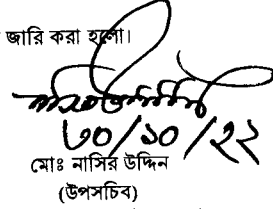 জারি করা হলো।
৩০/১০/২২
মোঃ নাসির উদ্দিন
(উপসচিব)